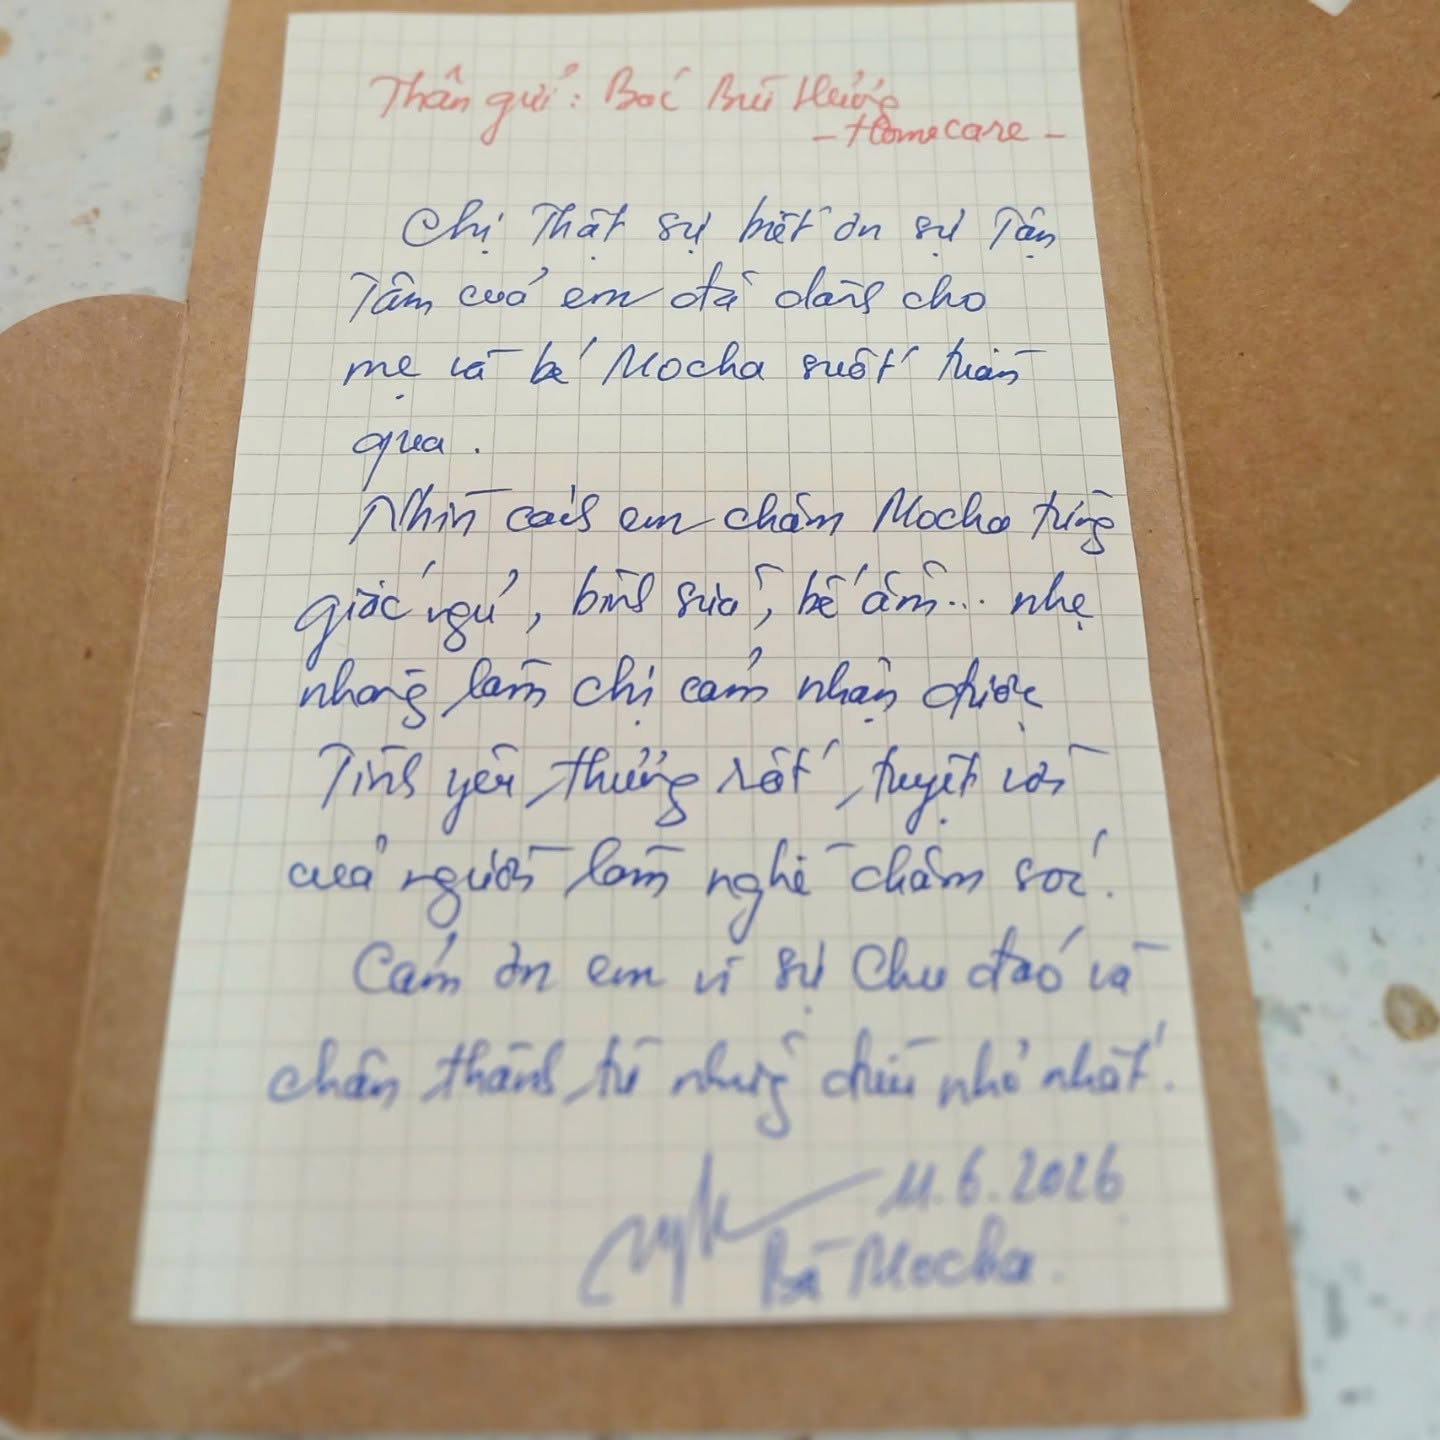 Thân gửi: Bác Bùi Hương
- Homecare -
Chị Thật sự biết ơn sự Tận
Tâm của em đã dành cho
mẹ và bé Mocha suốt tuần
qua.
Nhìn cách em chăm Mocha từng
giấc ngủ, bình sữa, bế ẵm... nhẹ
nhàng làm chị cảm nhận được
Tình yêu thương rất tuyệt vời
của người làm nghề chăm sóc.
Cảm ơn em vì sự Chu đáo và
chân thành từ những điều nhỏ nhất.
11.6.2026
Bà Mocha